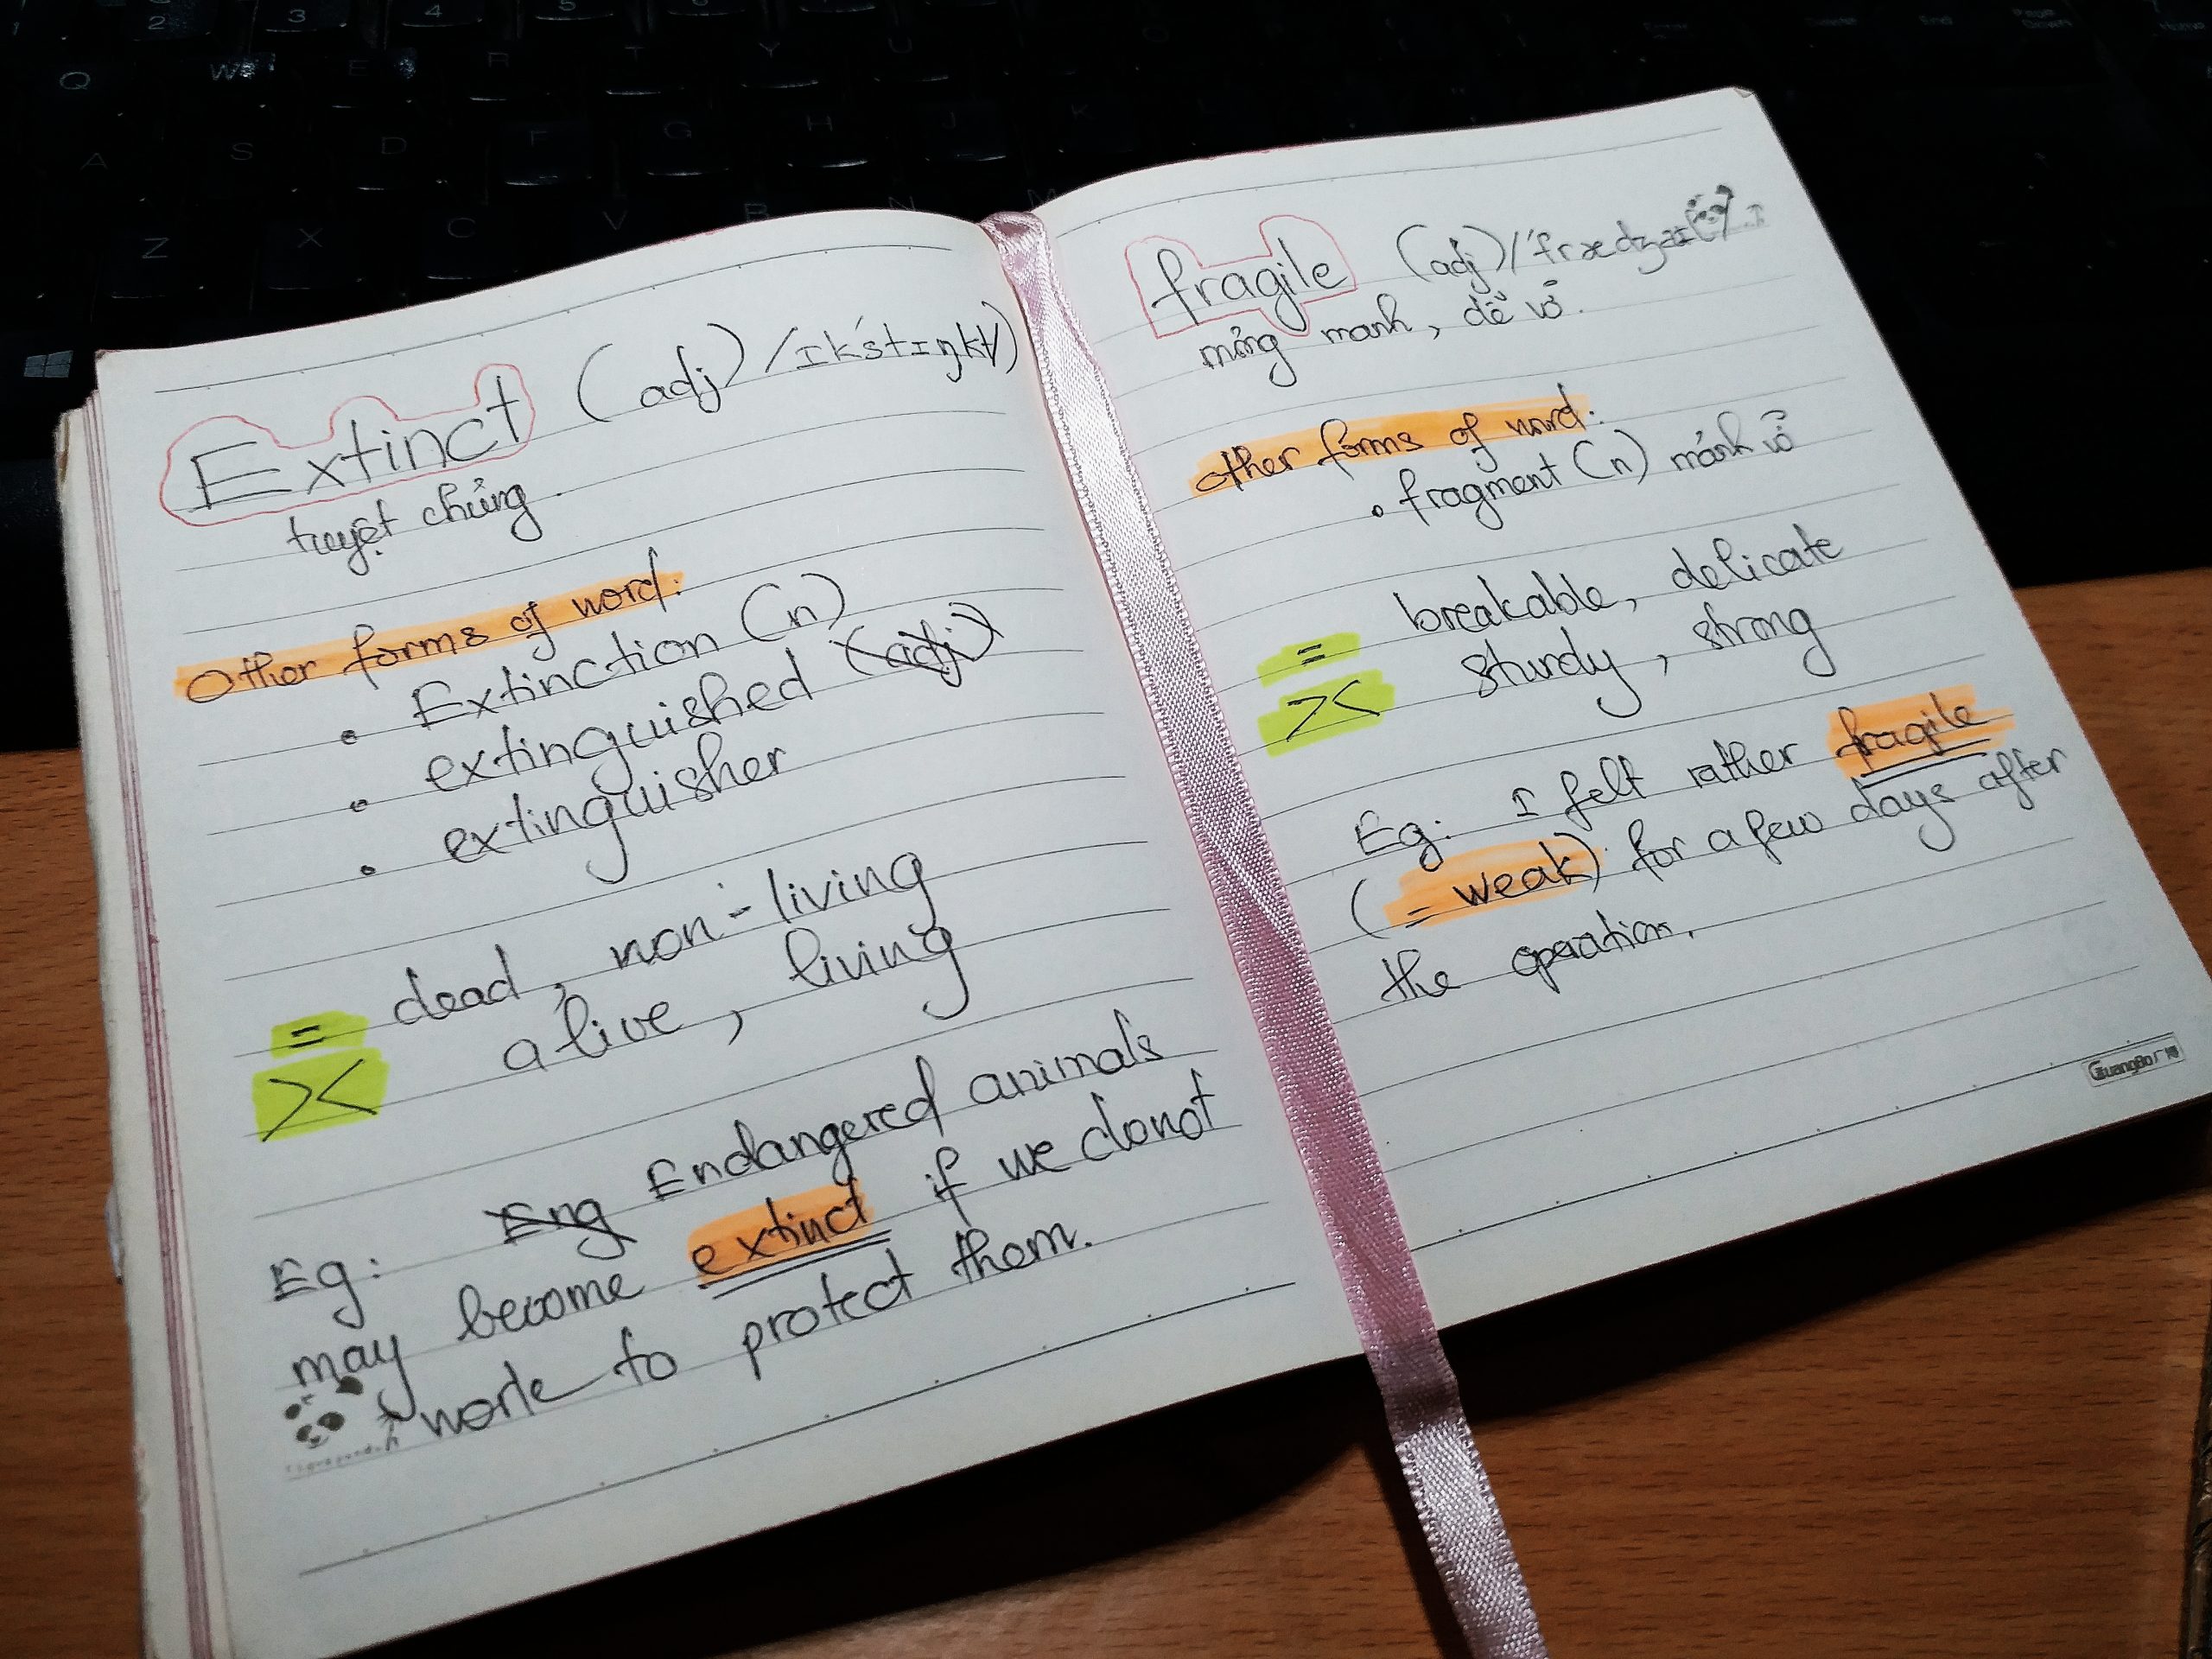 Extinct (adj) /ɪk'stɪŋkt/
tuyệt chủng.
Other forms of word:
• Extinction (n)
• extinguished (adj)
• extinguisher
= dead, non-living
>< alive, living
Eg: Eng Endangered animals
may become extinct if we donot
work to protect them.
fragile (adj) /'frædʒaɪ
mỏng manh, dễ vỡ.
Other forms of word:
• fragment (n) mảnh vỡ
= breakable, delicate
>< sturdy, strong
Eg: I felt rather fragile
(= weak) for a few days after
the operation.
GuangBo广博
Q W E R T Y U
A S D F G H J K
Z X C V B N M